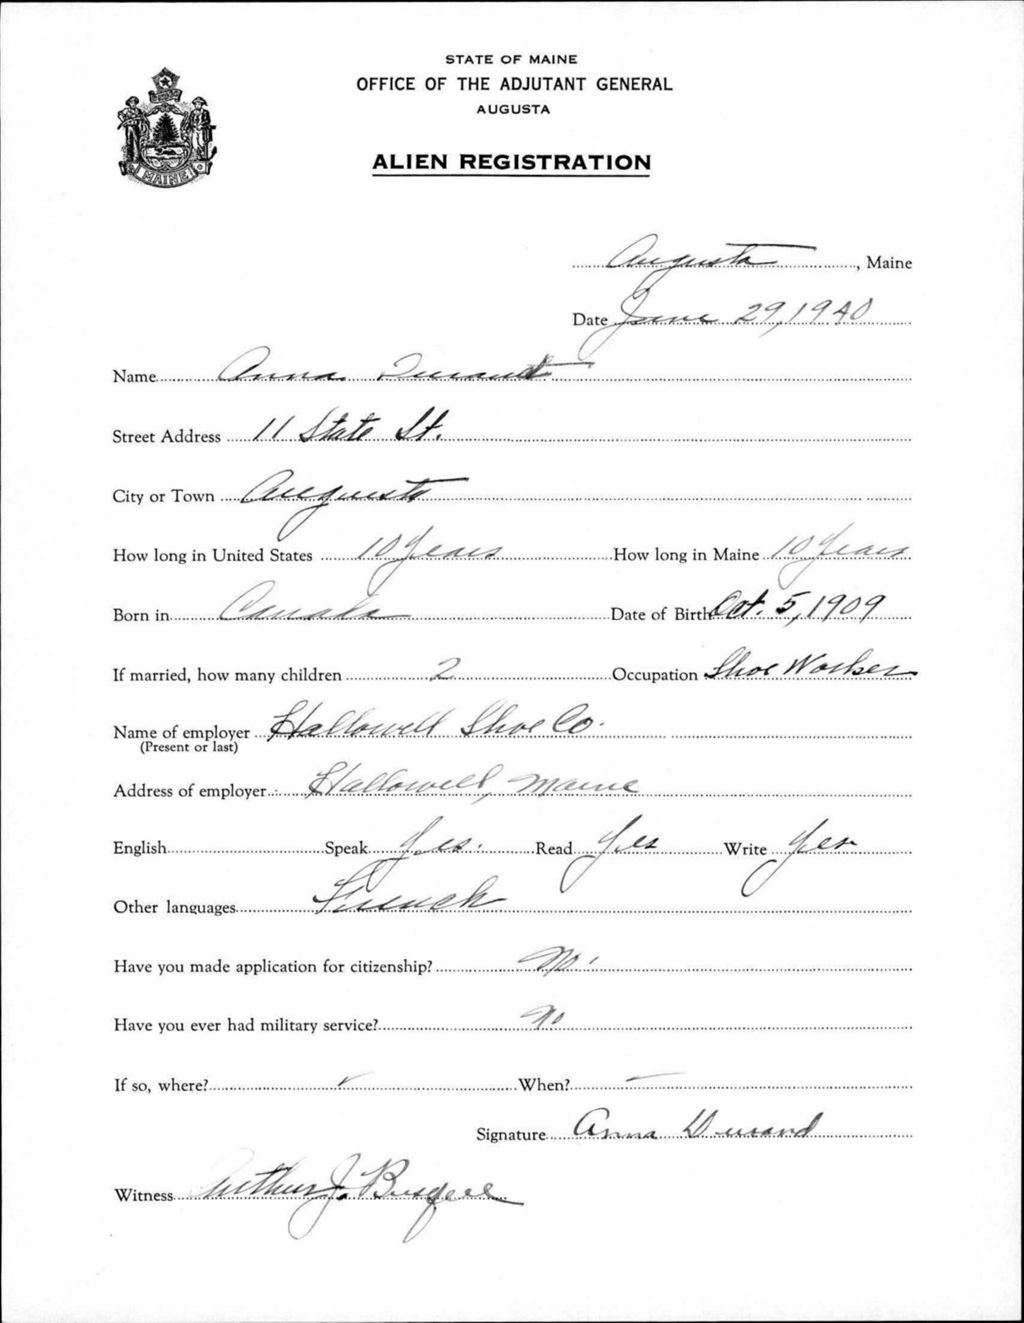 STATE OF MAINE
OFFICE OF THE ADJUTANT GENERAL
AUGUSTA
ALIEN REGISTRATION
MAINE
Augusta, Maine
Date June 29, 1940
Name Anna Durand
Street Address 11 State St.
City or Town Augusta
How long in United States 10 Years How long in Maine 10 Years
Born in Canada Date of Birth Oct. 5, 1909
If married, how many children 2 Occupation Shoe Worker
Name of employer Hallowell Shoe Co.
(Present or last)
Address of employer Hallowell, Maine
English Speak Yes. Read Yes Write Yes
Other languages French
Have you made application for citizenship? No.
Have you ever had military service? No
If so, where? ✓ When? —
Signature Anna Durand
Witness Arthur J.